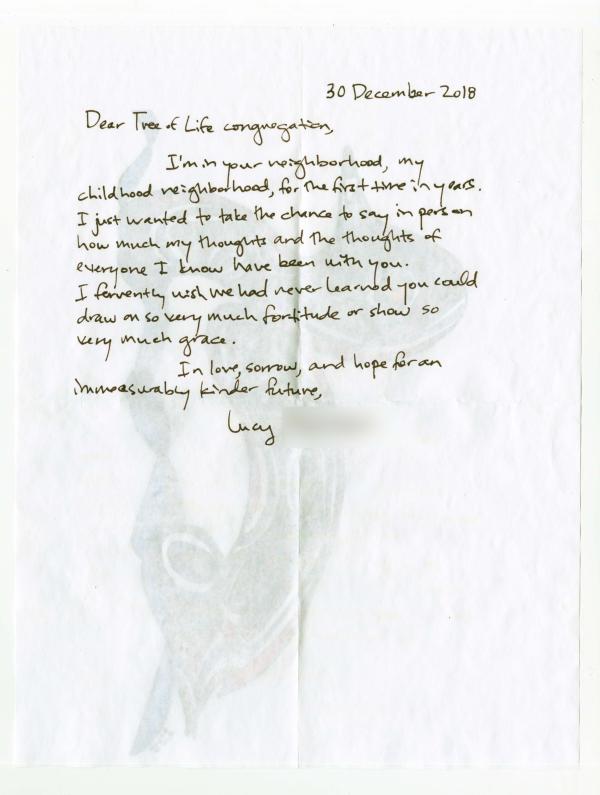 30 December 2018
Dear Tree of Life congregation,
I'm in your neighborhood, my
childhood neighborhood, for the first time in years.
I just wanted to take the chance to say in person
how much my thoughts and the thoughts of
everyone I know have been with you.
I fervently wish we had never learned you could
draw on so very much fortitude or show so
very much grace.
In love, sorrow, and hope for an
immeasurably kinder future,
Lucy